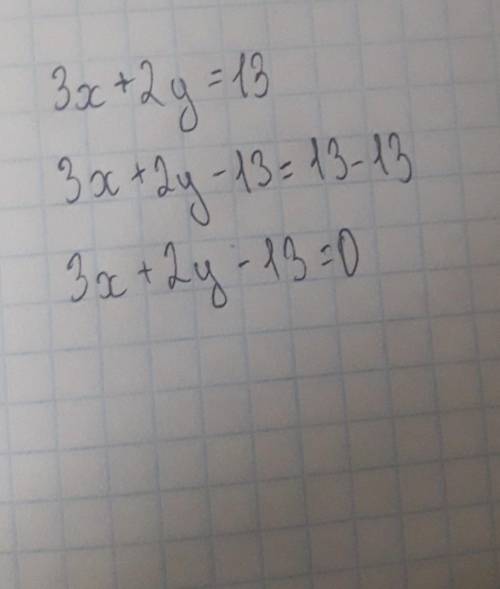 3x+2y=13
3x+2y-13=13-13
3x+2y-13=0